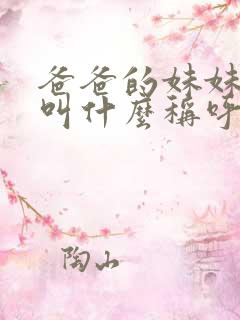 爸爸的妹妹
叫什麼稱呼
陶山